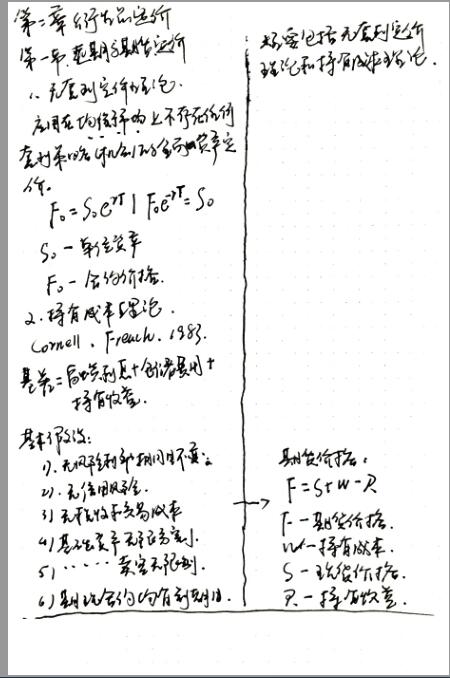 第二章 衍生品定价
第一节 远期与期货定价
1. 无套利定价理论.
应用在均衡市场上不存在任何
套利策略(机会)的金融资产定
价。
F₀=S₀e^rT | F₀e^-rT=S₀
S₀ — 资产
F₀ — 合约价格.
2. 持有成本理论.
Cornell, French. 1983.
基差=融资利息+仓储费用+
持有收益.
基本假设:
1). 无风险利率期间内不变;
2). 无信用风险.
3) 无税收和交易成本
4) 基础资产无限分割.
5) ······ 卖空无限制.
6) 期现合约均有到期日.
内容包括无套利定价
理论和持有成本理论.
期货价格:
F=S+W-R
F—期货价格.
W—持有成本.
S—现货价格.
R—持有收益.